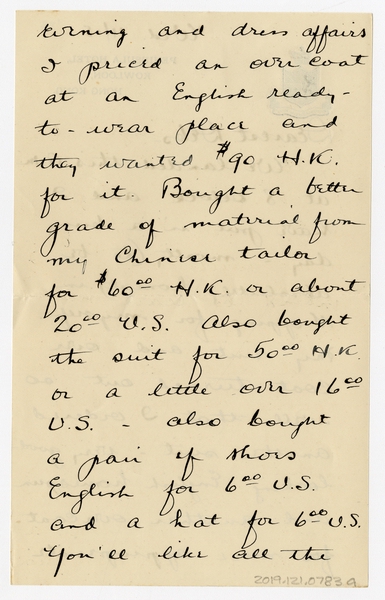 evening and dress affairs
I priced an over coat
at an English ready-
to-wear place and
they wanted $90 H.K.
for it. Bought a better
grade of material from
my Chinese tailor
for $60⁰⁰ H.K. or about
20⁰⁰ U.S. Also bought
the suit for 50⁰⁰ H.K.
or a little over 16⁰⁰
U.S. - also bought
a pair of shoes
English for 6⁰⁰ U.S.
and a hat for 6⁰⁰ U.S.
You'll like all the
2019.121.0783g